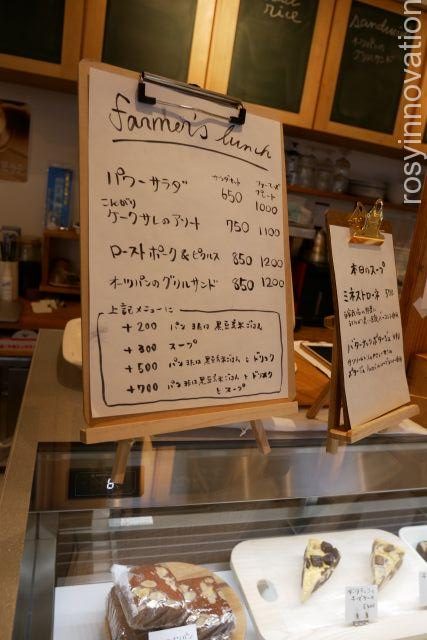 farmer's lunch
サラダセット ファーマーズプレート
パワーサラダ 650 1000
こんがり
ケークサレのアソート 750 1100
ローストポーク&ピクルス 850 1200
オーツパンのグリルサンド 850 1200
上記メニューに
+200 パン または 黒豆玄米ごはん
+300 スープ
+500 パン または 黒豆玄米ごはん と ドリンク
+700 パン または 黒豆玄米ごはん と ドリンク
と スープ
本日のスープ
ミネストローネ
バターナッツポタージュ
rice
Sandwich
6
チーズケーキ
rosyinnovation